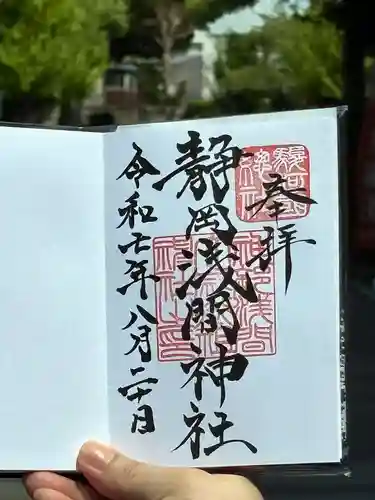 奉拝
静岡浅間神社
令和七年八月二十日